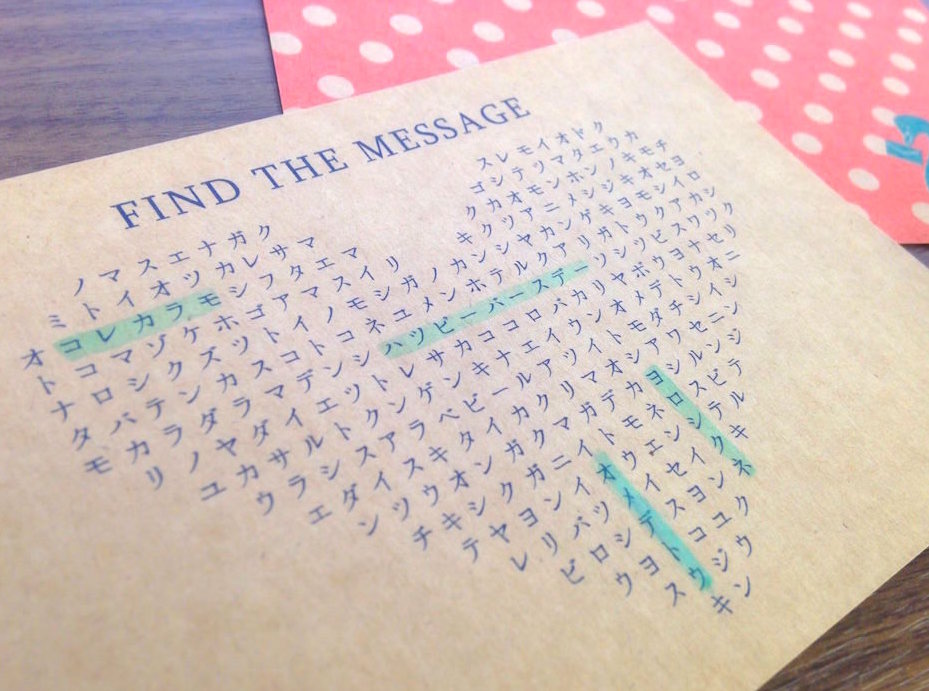 FIND THE MESSAGE
ノマスエナガク スレモイオドク
ミトイオツカレサマ ゴシテツマクエウカ
オコレカラモシフタエマ クカオモンホンノキモチ
トコマゾケホゴアマスイリ キクツアニメンシジキオセヨ
ナロシクズツトイノモシガノカンシヤカンゲキヨモシイロ
タバテンカスコトコネユメンホテルクアリガトウクアカシ
モカラダラマデンシハツピーバースデーソシツピスワツク
リノヤダイエツトレサカココロバカリヤボウヨナセリ
ユカサルトクンゲンキナエイウンオメデトウオニ
ウラシスアラベビールアツイトモダチシイシ
エダイスキタイカクリマオシアワセニン
ンツウオンガクマガデカヨシルンジ
チキシクガニイトモネロスビテ
テヤヨンイオウエンシテル
レリバツメイセイクキ
ビロシデスヨンネ
ウヨトコユク
スウジウ
キン